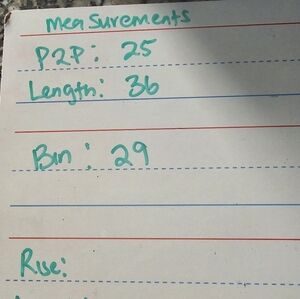 measurements
P2P: 25
Length: 36
Bin: 29
Rise: